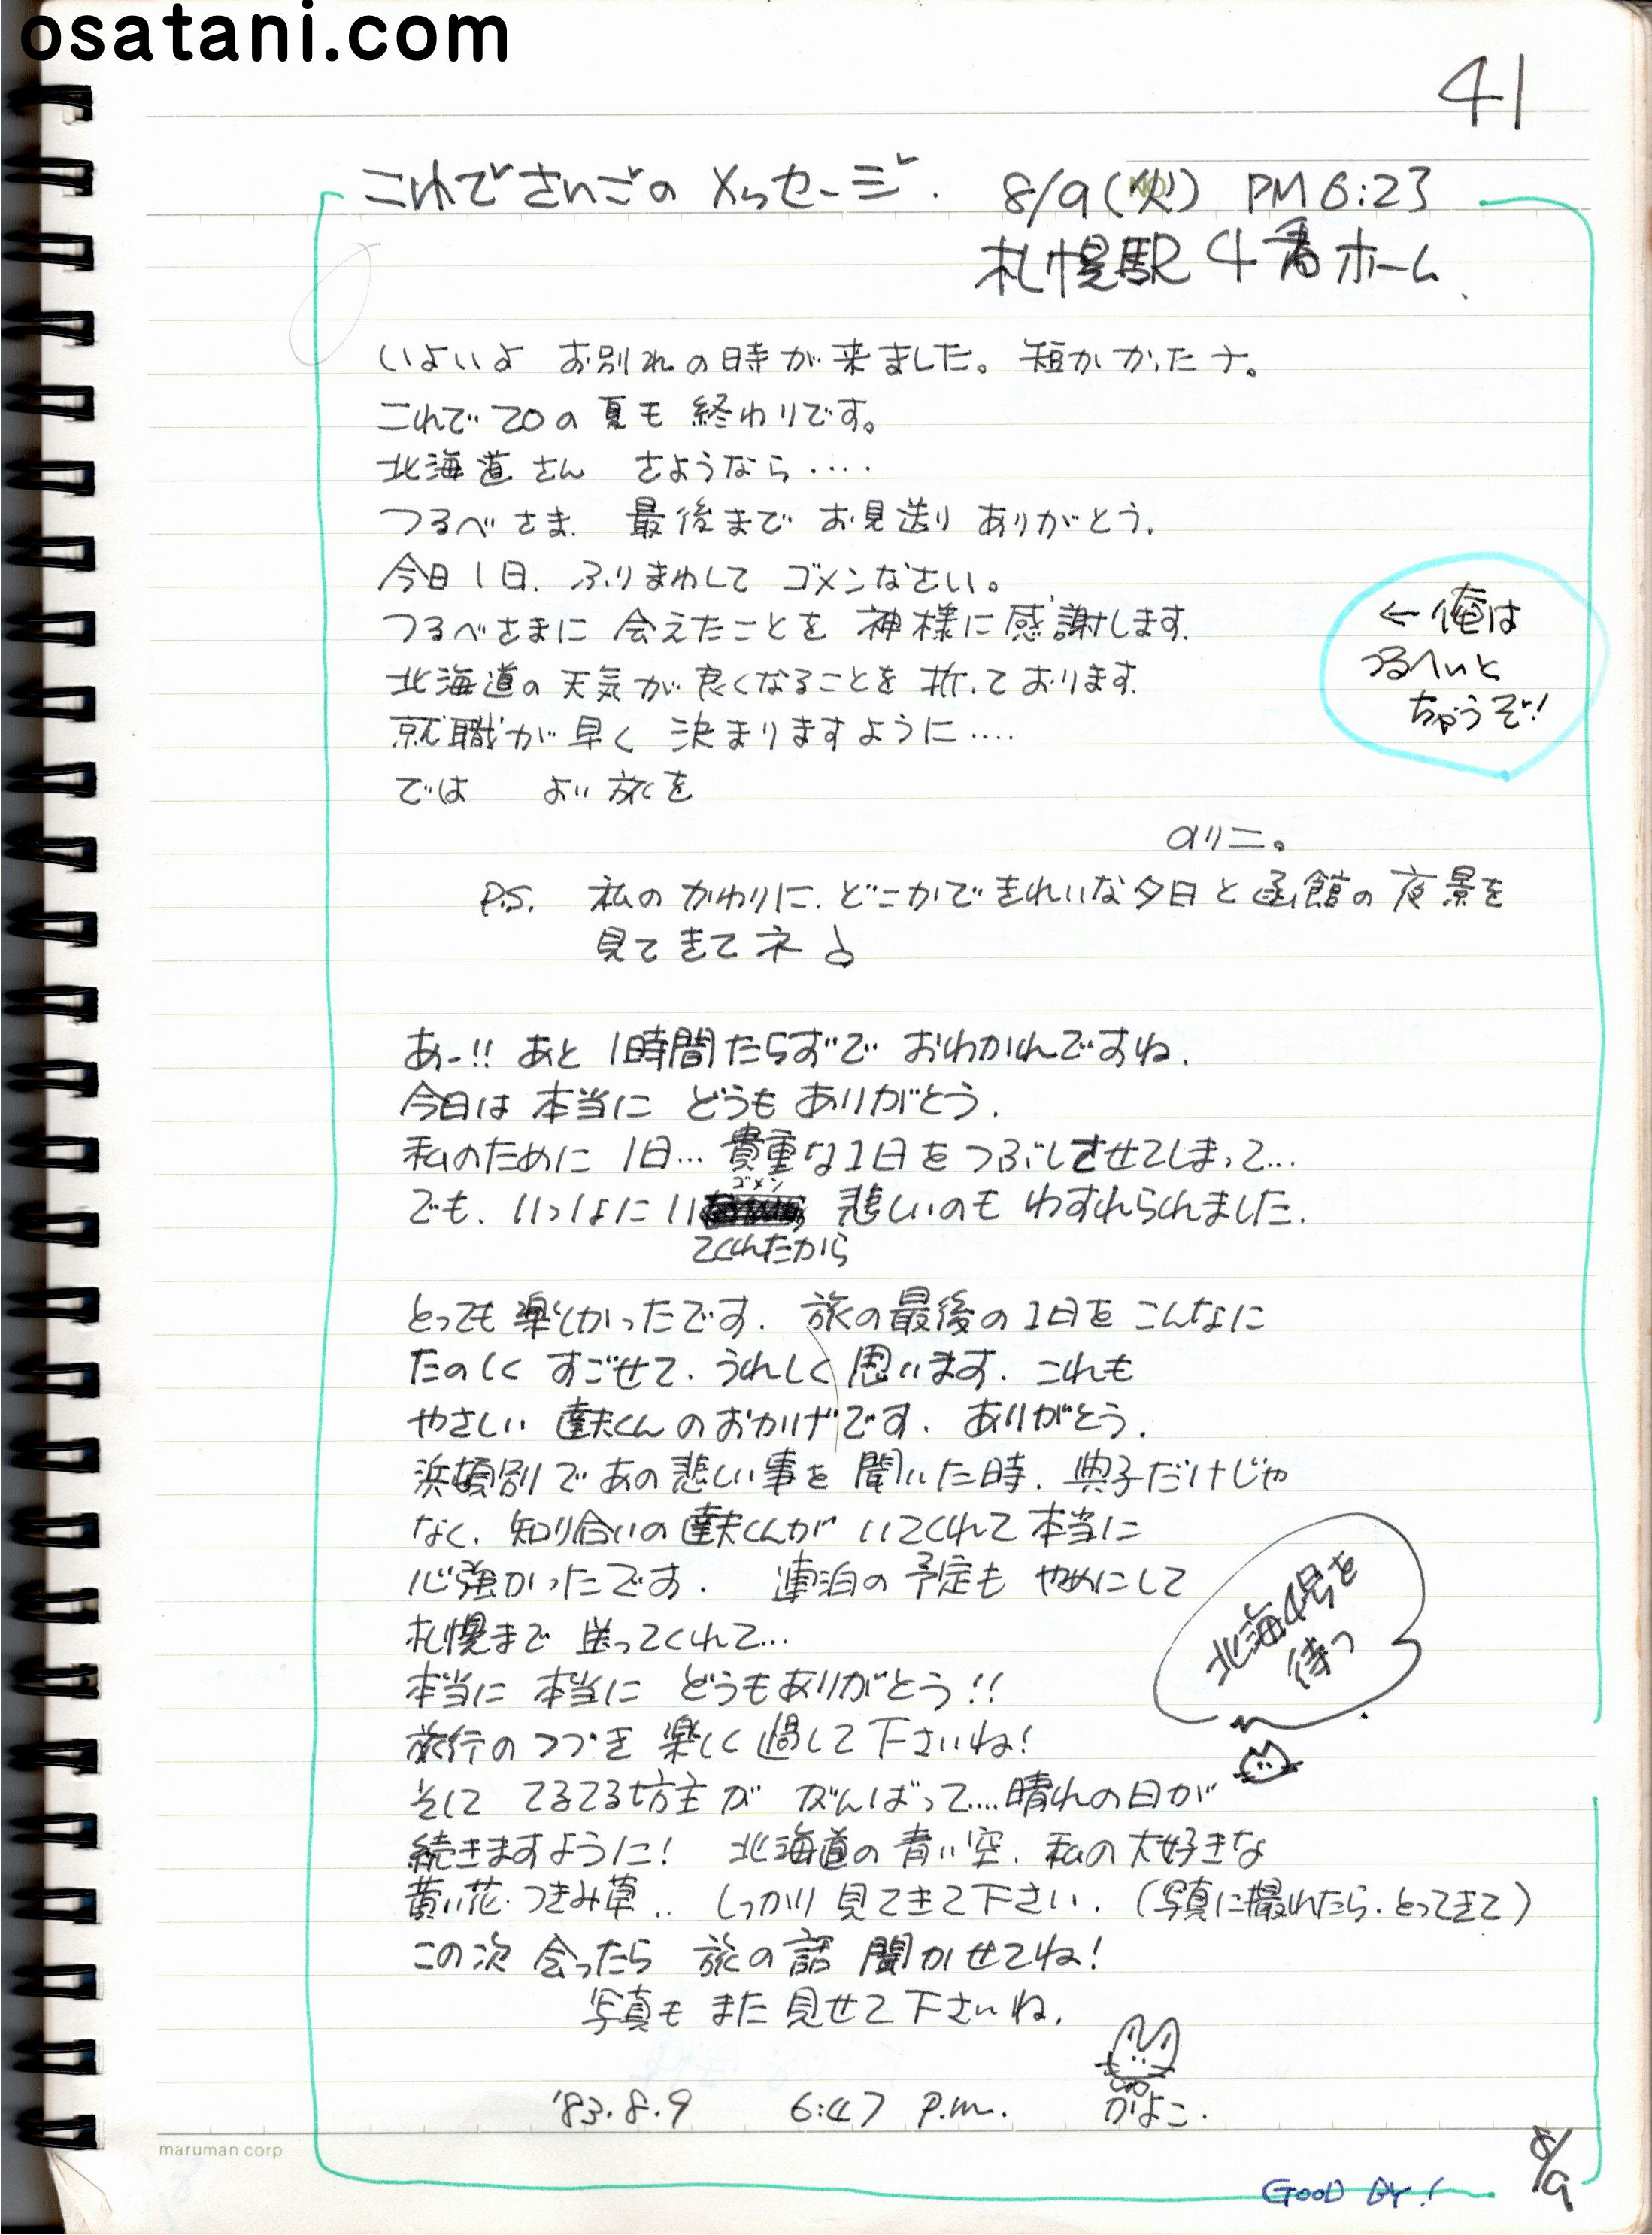 osatani.com
41
これでさいごのメッセージ. 8/9(火) PM 6:23
札幌駅4番ホーム.
いよいよ お別れの時が来ました。短かかったナ。
これで20の夏も 終わりです。
北海道さん さようなら‥‥
つるべさま. 最後まで お見送り ありがとう.
今日1日. ふりまわして ゴメンなさい。
つるべさまに 会えたことを 神様に感謝します.
北海道の 天気が 良くなることを 祈っております.
就職が早く 決まりますように‥‥
では よい旅を
←俺は
つるべいと
ちゃうぞ!
のりこ。
P.S. 私の かわりに. どこかで きれいな夕日と函館の夜景を
見てきてネ♪
あー!! あと 1時間たらずで おわかれですね.
今日は 本当に どうも ありがとう.
私のために 1日… 貴重な1日を つぶしさせてしまって…
ゴメン
でも. いっしょに い 悲しいのも わすれられました.
てくれたから
とっても 楽しかったです. 旅の最後の1日を こんなに
たのしく すごせて. うれしく思います. これも
やさしい 達夫くんのおかげです. ありがとう.
浜頓別で あの悲しい事を 聞いた時. 典子だけじゃ
なく. 知り合いの達夫くんが いてくれて 本当に
心強かったです. 連泊の 予定も やめにして
札幌まで 送ってくれて…
北海4号を
待つ
本当に 本当に どうもありがとう!!
旅行の つづき 楽しく 過して 下さいね!
そして てるてる坊主が がんばって‥‥晴れの日が
続きますように! 北海道の 青い空. 私の大好きな
黄い花・つきみ草‥ しっかり 見てきて下さい. (写真に撮れたら. とってきて)
この次 会ったら 旅の話 聞かせてね!
写真も また 見せて下さいね.
'83.8.9 6:47 P.m. かよこ.
maruman corp
GOOD BY!
8/9